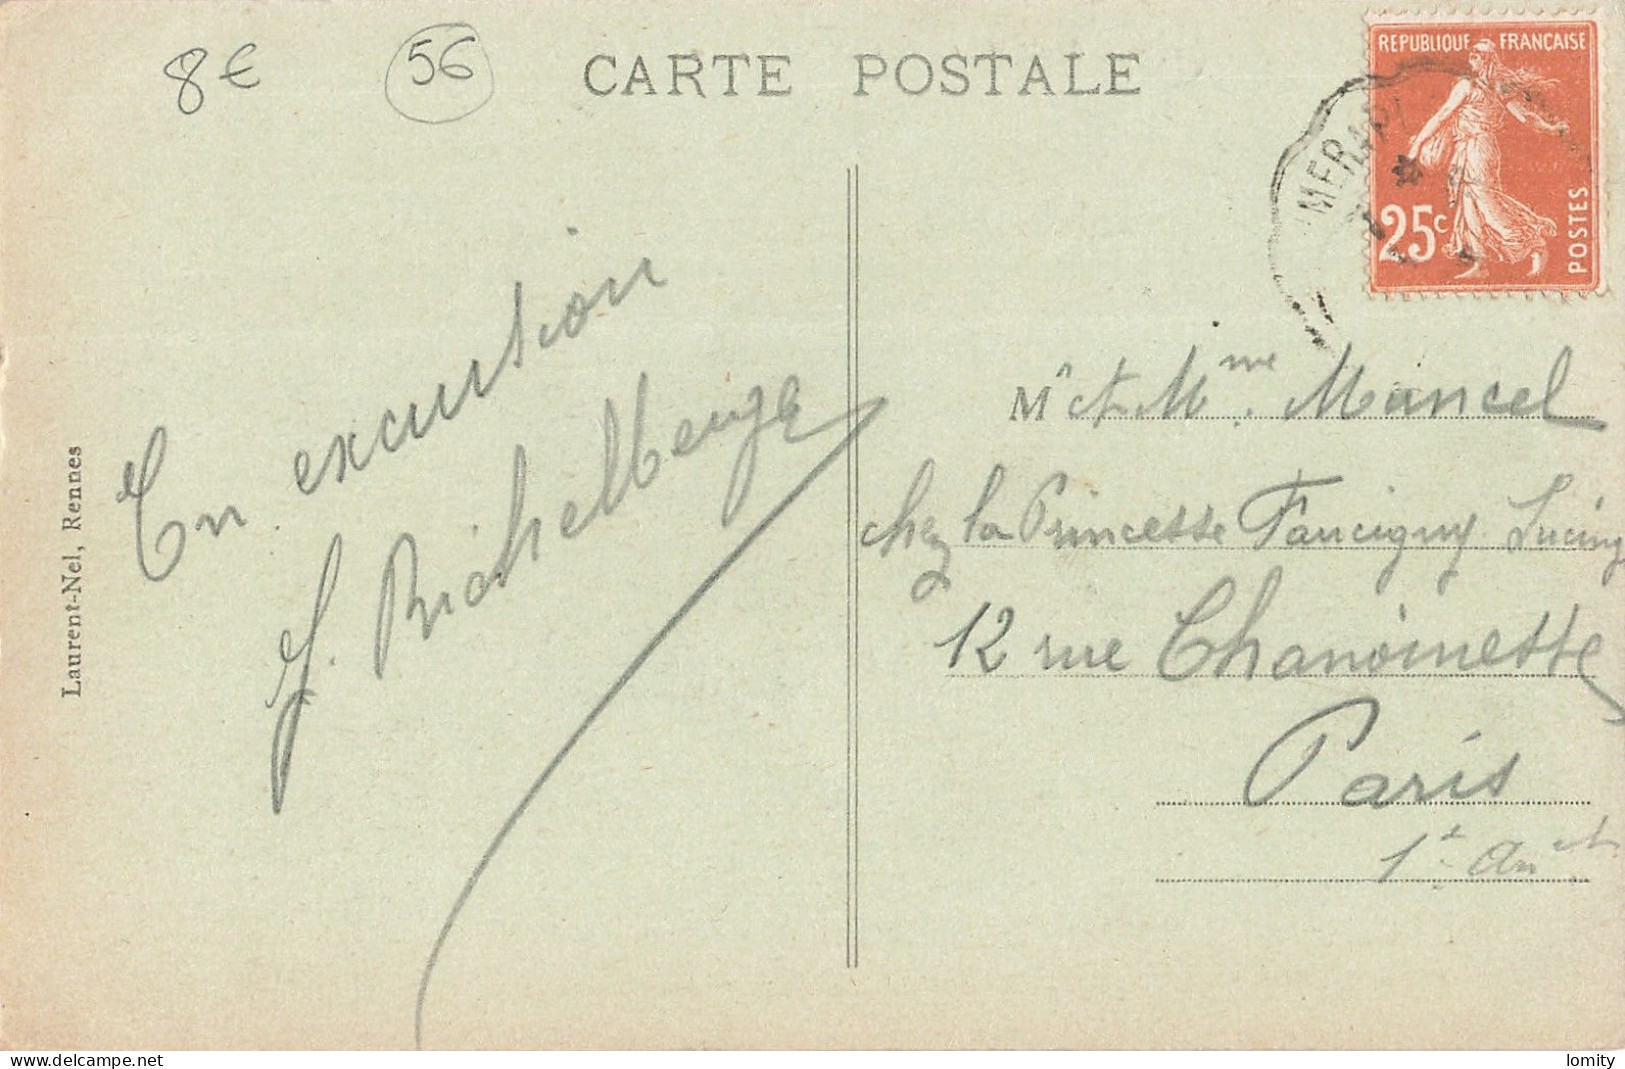 8€
56
CARTE POSTALE
REPUBLIQUE FRANÇAISE
25c
POSTES
MERA
En excursion
Laurent-Nel, Rennes
Mr et Mme. Mancel
chez la Princesse Faucigny Lucing
12 rue Chanoinesse
Paris
www.delcampe.net
lomity